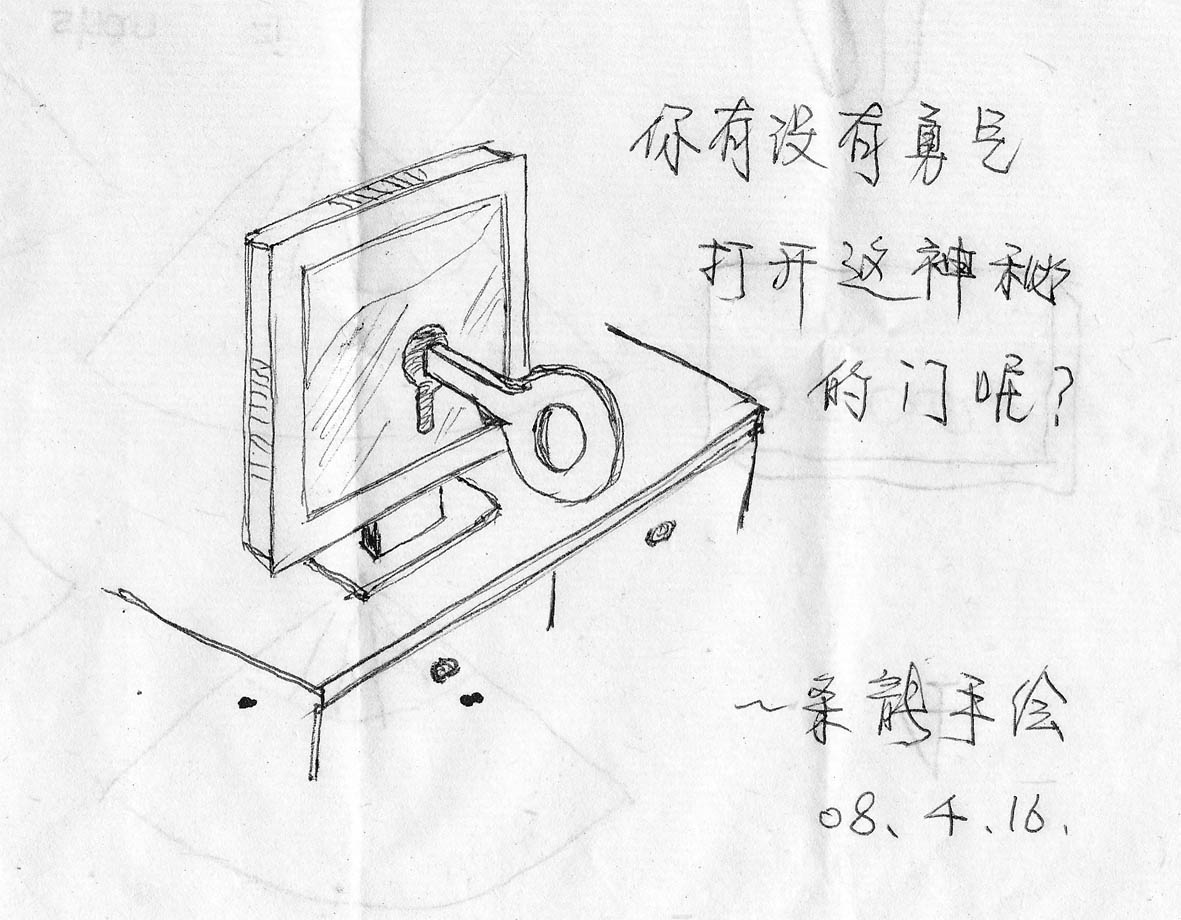 你有没有勇气
打开这神秘
的门呢?
~ 手绘
08、4.16.